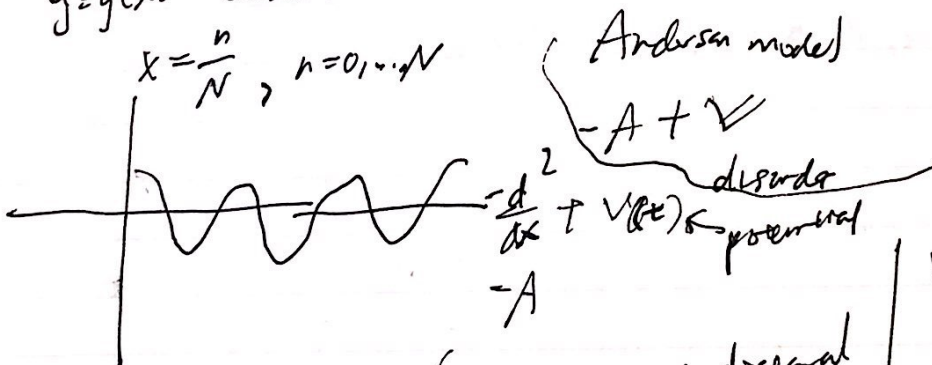 x = n/N , n=0,...,N
Anderson model
-A + V
disorder
-d²/dx + V(x) ← potential
-A